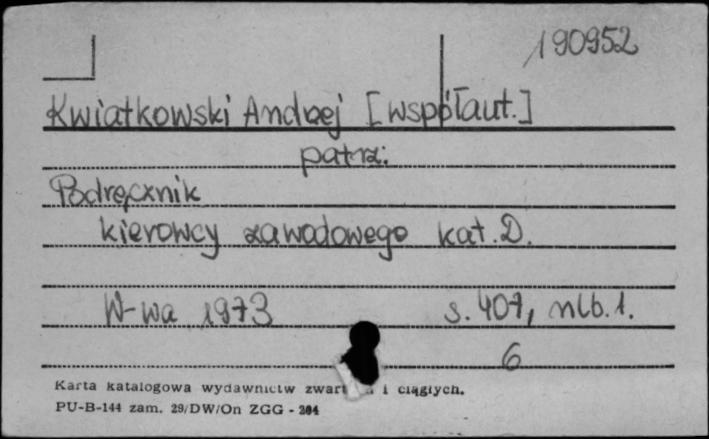 190952
Kwiatkowski Andrzej [współaut.]
patrz:
Podręcznik
kierowcy zawodowego kat. D.
W-wa 1973 s. 407, nlb. 1.
6
Karta katalogowa wydawnictw i ciągłych.
PU-B-144 zam. 29/DW/On ZGG - 204